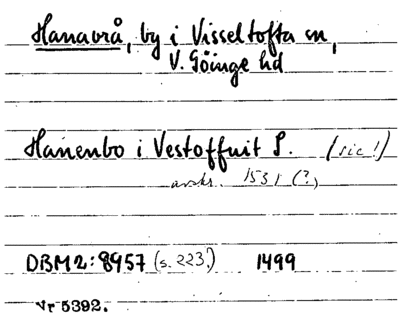 Hanavrå, by i Visseltofta sn,
V. Göinge hd
Hanenbo i Vestoffuit S. (sic!)
avskr. 1531 (?)
DBM2:8957 (s. 223?) 1499
Nr 5392.